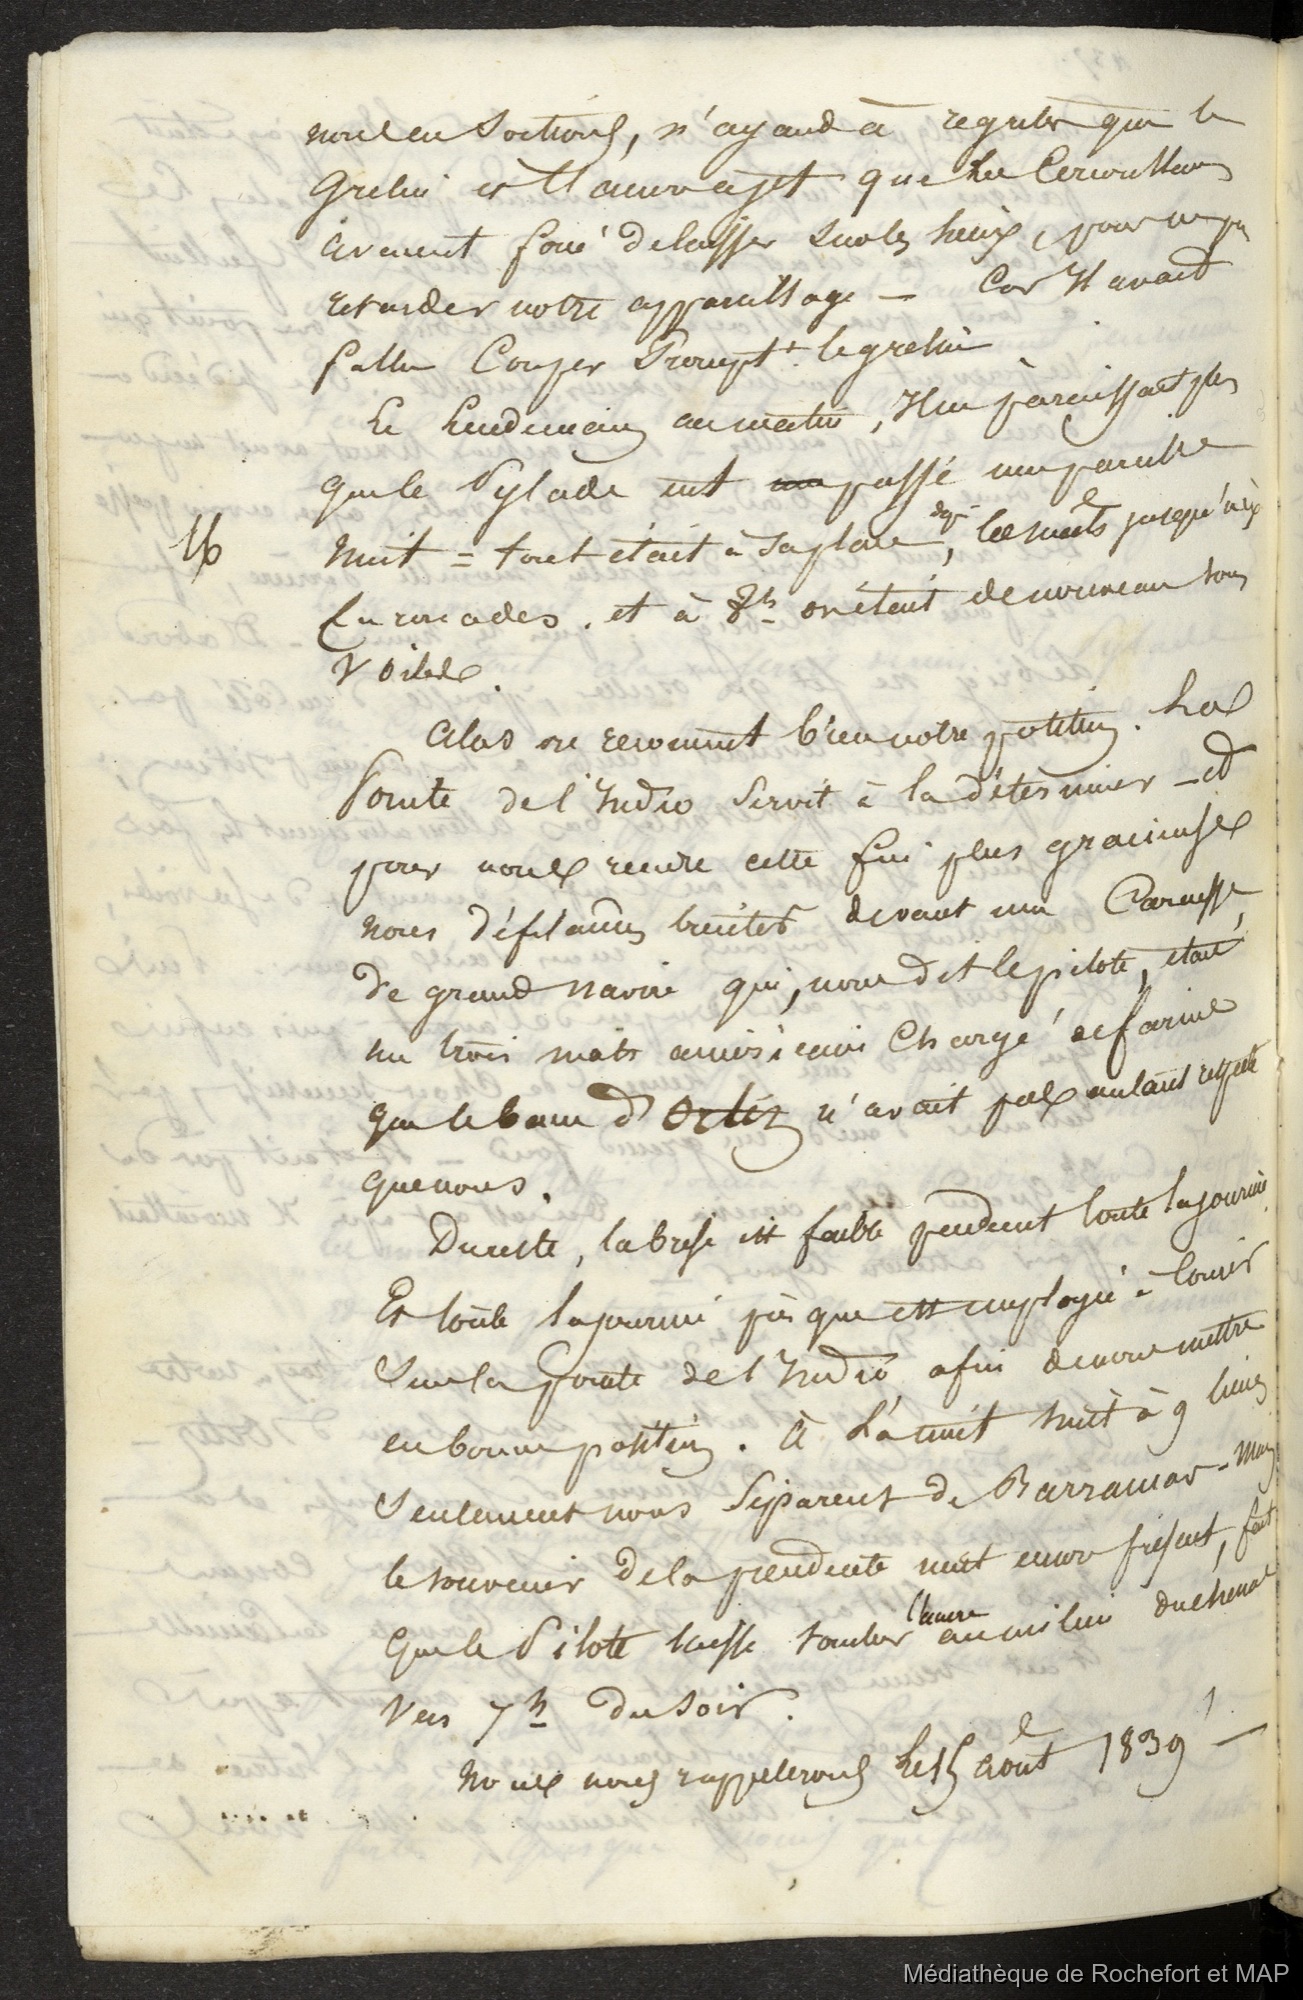 nous en sortions, n'ayant à regretter que le
Grelin et l'ancre à jet que les
avaient forcé de laisser sur les lieux, pour ne pas
retarder notre appareillage — Car Il avait
fallu Couper Prompt.t le grelin
Le lendemain au matin, Il ne paraissait plus
que le Pylade eut passé une pareille
16
nuit = tout était à sa place, les mats jusqu'aux
. et à 8h on était de nouveau sous
voiles.
Alors on reconnut bien notre position. La
Pointe de l'Indio Servit à la déterminer — et
pour nous rendre cette fin plus gracieuse
nous défilames devant une Carcasse
de grand navire qui, nous dit le pilote, était
un trois mats américain Chargé de farine
que le banc d'Ortiz n'avait pas autant respecté
que nous.
Du reste, la brise est faible pendant toute la journée
Et toute la journée presque est employée à courir
Sur la Pointe de l'Indio afin de nous mettre
en bonne position. À la nuit huit à 9 lieues
Seulement nous séparent de -
le souvenir de la précédente nuit encore présent, fait
que le Pilote laisse tomber l'ancre au milieu du chenal
Vers 7h du soir.
Nous nous rappellerons le 15 août 1839! —